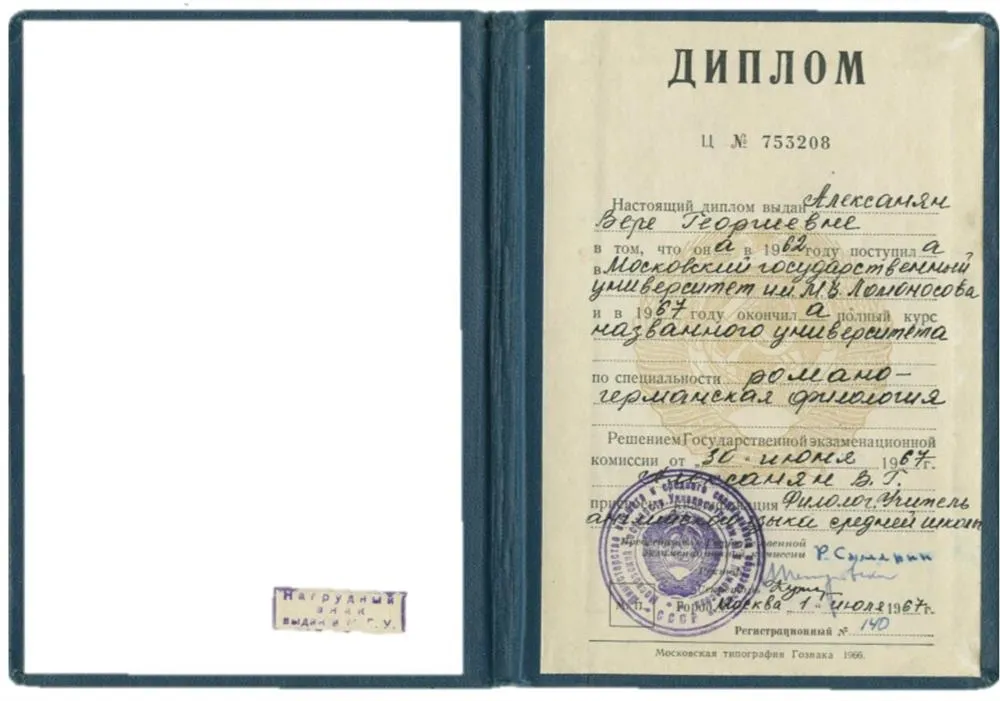 Нагрудный
знак
выдан в М.Г.У.
ДИПЛОМ
Ц № 753208
Настоящий диплом выдан Алексанян
Вере Георгиевне
в том, что он а в 1962 году поступил а
в Московский государственный
университет им. М.В. Ломоносова
и в 1967 году окончил а полный курс
названного университета
по специальности романо-
германская филология
Решением Государственной экзаменационной
комиссии от „30" июня 1967 г.
Алексанян В. Г.
Филолог. Учитель
английского языка средней школы
Председатель Государственной
экзаменационной комиссии
М. П. Город Москва „1" июля 1967 г.
Регистрационный № 140
СССР
Московская типография Гознака 1966.